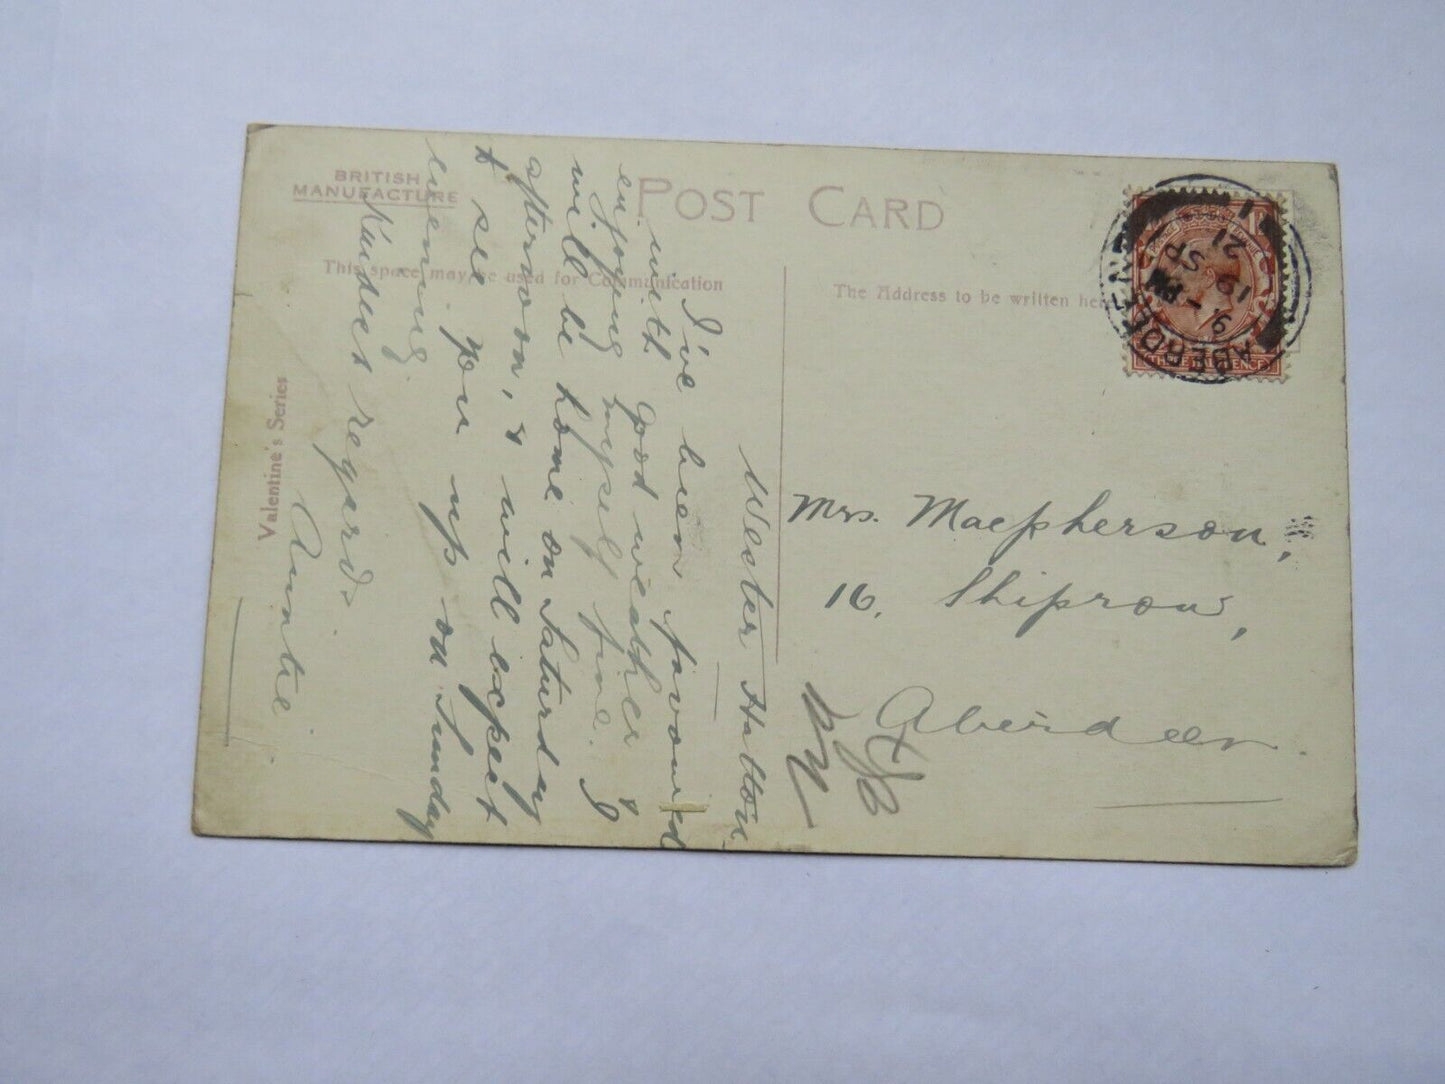 BRITISH
MANUFACTURE
POST CARD
This space may be used for Communication
The Address to be written here
Valentine's Series
Wester Hatton
I've been favoured
with good weather &
enjoying myself fine. I
will be home on Saturday
afternoon, & will expect
to see you up on Sunday
evening
Kindest regards
Auntie
Mrs. Macpherson,
16, Shiprow,
Aberdeen.
ABERDEEN
PM
SP
19
21
1